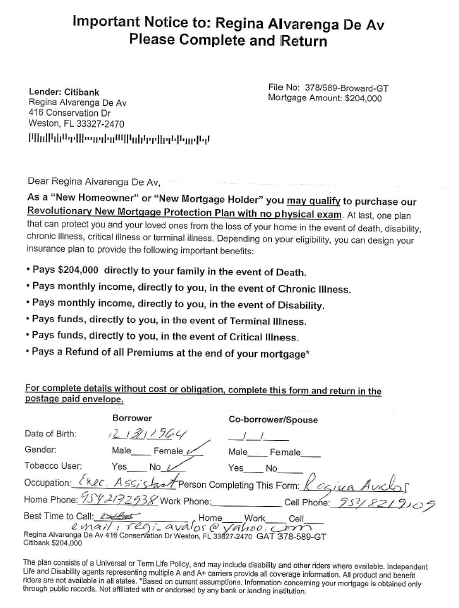 Important Notice to: Regina Alvarenga De Av
Please Complete and Return
Lender: Citibank
Regina Alvarenga De Av
416 Conservation Dr
Weston, FL 33327-2470
File No: 378/589-Broward-GT
Mortgage Amount: $204,000
Dear Regina Alvarenga De Av,
As a “New Homeowner” or “New Mortgage Holder” you may qualify to purchase our
Revolutionary New Mortgage Protection Plan with no physical exam. At last, one plan
that can protect you and your loved ones from the loss of your home in the event of death, disability,
chronic illness, critical illness or terminal illness. Depending on your eligibility, you can design your
insurance plan to provide the following important benefits:
• Pays $204,000 directly to your family in the event of Death.
• Pays monthly income, directly to you, in the event of Chronic Illness.
• Pays monthly income, directly to you, in the event of Disability.
• Pays funds, directly to you, in the event of Terminal Illness.
• Pays funds, directly to you, in the event of Critical Illness.
• Pays a Refund of all Premiums at the end of your mortgage*
For complete details without cost or obligation, complete this form and return in the
postage paid envelope.
Borrower Co-borrower/Spouse
Date of Birth: / /
Gender: Male Female ✓ Male Female
Tobacco User: Yes No ✓ Yes No
Occupation: Exec. Assistant Person Completing This Form: Regina Avalos
Home Phone: Work Phone: Cell Phone:
Best Time to Call: Home Work Cell
email: regi_avalos@yahoo.com
Regina Alvarenga De Av 416 Conservation Dr Weston, FL 33327-2470 GAT 378-589-GT
Citibank $204,000
The plan consists of a Universal or Term Life Policy, and may include disability and other riders where available. Independent
Life and Disability agents representing multiple A and A+ carriers provide all coverage information. All product and benefit
riders are not available in all states. *Based on current assumptions. Information concerning your mortgage is obtained only
through public records. Not affiliated with or endorsed by any bank or lending institution.